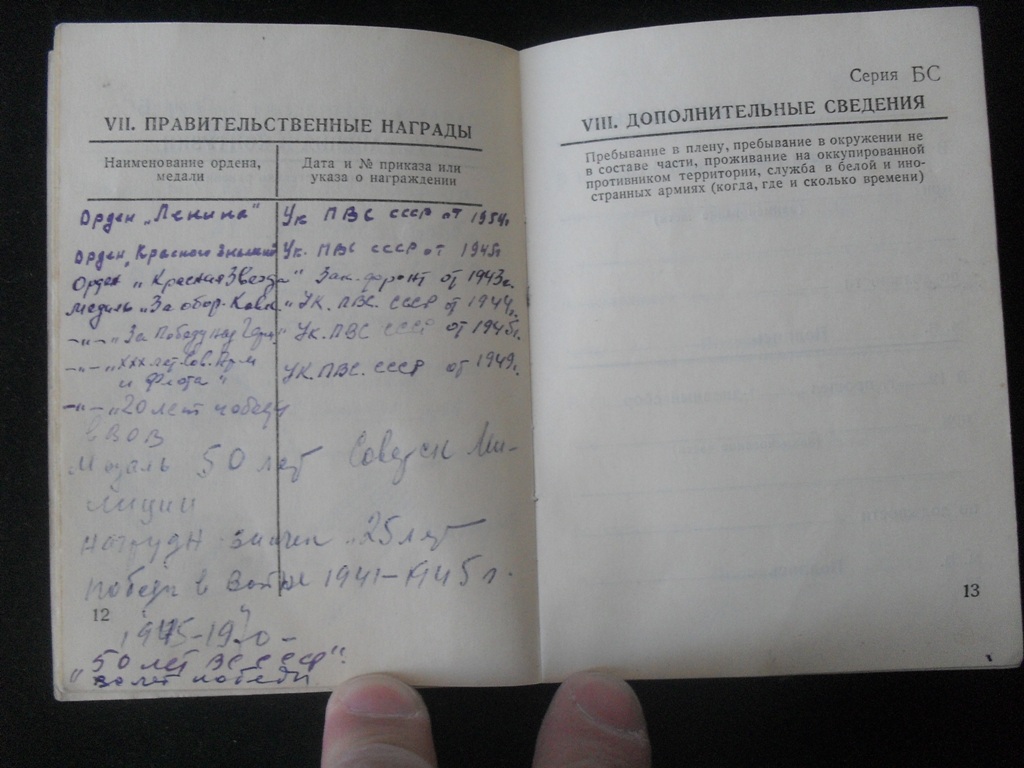 VII. ПРАВИТЕЛЬСТВЕННЫЕ НАГРАДЫ
Наименование ордена,
медали
Дата и № приказа или
указа о награждении
Орден „Ленина" Ук ПВС СССР от 1954г.
Орден „Красного Знамени Ук. ПВС СССР от 1945г
Орден „Красная Звезда" Зак. фронт от 1943г.
Медаль „За обор. Кавк." Ук. ПВС. СССР от 1944г.
-„- „За Победу над Герм" Ук. ПВС СССР от 1945г.
-„- „XXX лет Сов. Арм
и Флота" Ук. ПВС. СССР от 1949г.
-„- „20 лет победы
в ВОВ
Медаль 50 лет Советск Ми-
лиции
нагрудн значек „25 лет
победы в войне 1941-1945г.
1945-1970-
„50 лет ВС СССР"
лет победы
12
Серия БС
VIII. ДОПОЛНИТЕЛЬНЫЕ СВЕДЕНИЯ
Пребывание в плену, пребывание в окружении не
в составе части, проживание на оккупированной
противником территории, служба в белой и ино-
странных армиях (когда, где и сколько времени)
13